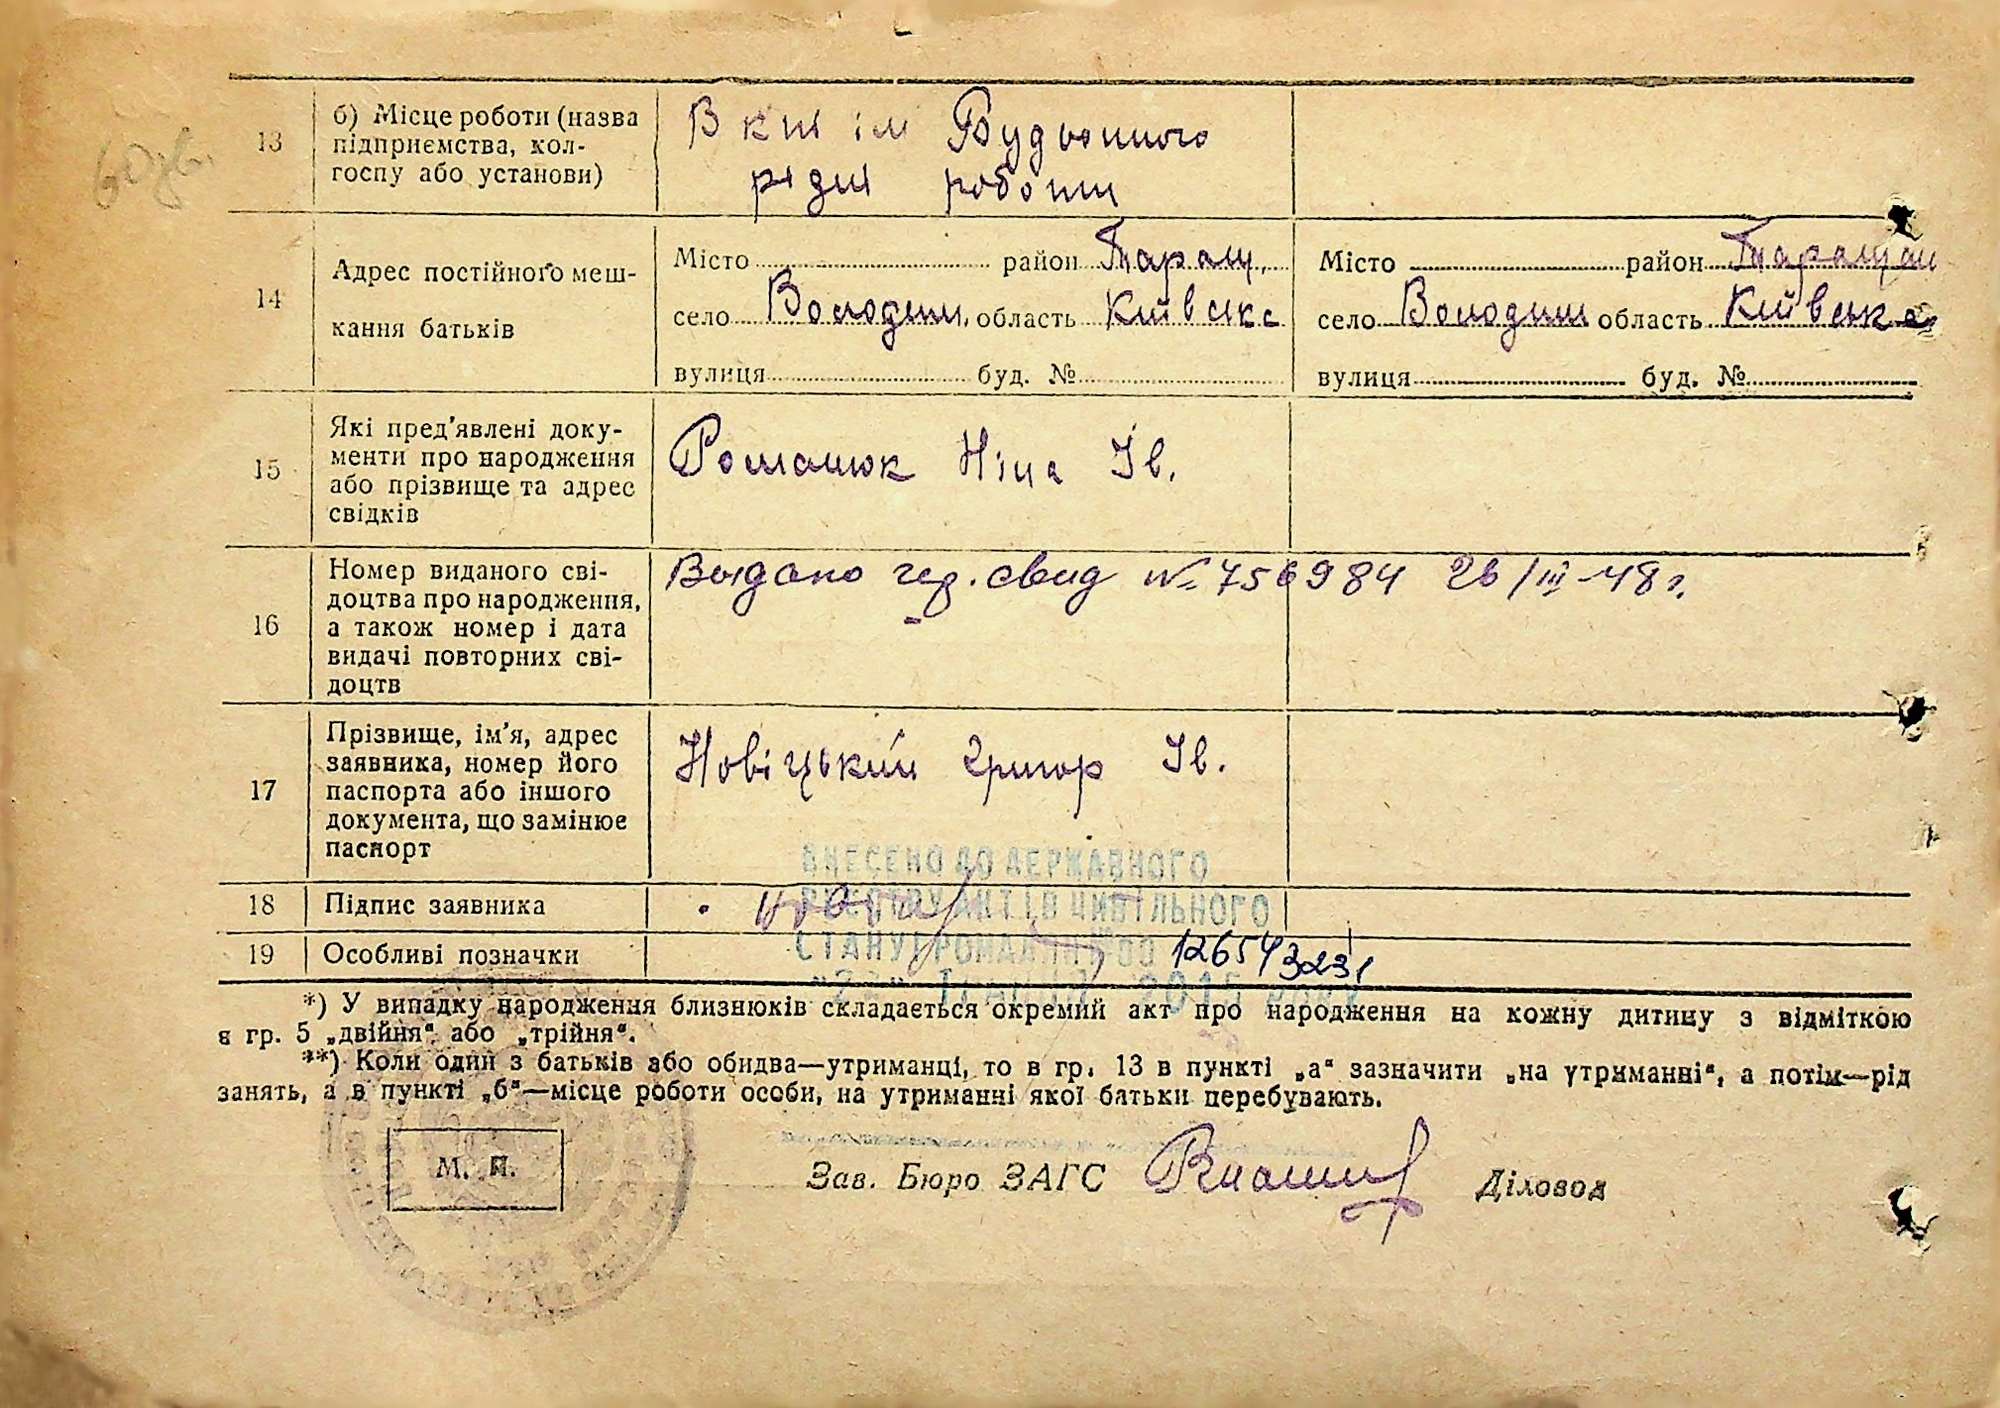 13
б) Місце роботи (назва
підприємства, кол-
госпу або установи)
В к-ті ім Будьонного
ряді роботи
14
Адрес постійного меш-
кання батьків
Місто район Таращ.
село Володим. область Київська
вулиця буд. №
Місто район Таращан
село Володим область Київська
вулиця буд. №
15
Які пред'явлені доку-
менти про народження
або прізвище та адрес
свідків
Романюк Ніна Ів.
16
Номер виданого сві-
доцтва про народження,
а також номер і дата
видачі повторних сві-
доцтв
Выдано гер. свид № 756984 26/III-48 г.
17
Прізвище, ім'я, адрес
заявника, номер його
паспорта або іншого
документа, що замінює
паспорт
Новіцький Григор Ів.
ВНЕСЕНО ДО ДЕРЖАВНОГО
РЕЄСТРУ АКТІВ ЦИВІЛЬНОГО
СТАНУ ГРОМАДЯН № 00 126543231
2015 року
18
Підпис заявника
19
Особливі позначки
*) У випадку народження близнюків складається окремий акт про народження на кожну дитину з відміткою
в гр. 5 „двійня“ або „трійня“.
**) Коли один з батьків або обидва—утриманці, то в гр. 13 в пункті „а“ зазначити „на утриманні“, а потім—рід
занять, а в пункті „б“—місце роботи особи, на утриманні якої батьки перебувають.
М. П.
Зав. Бюро ЗАГС
Діловод